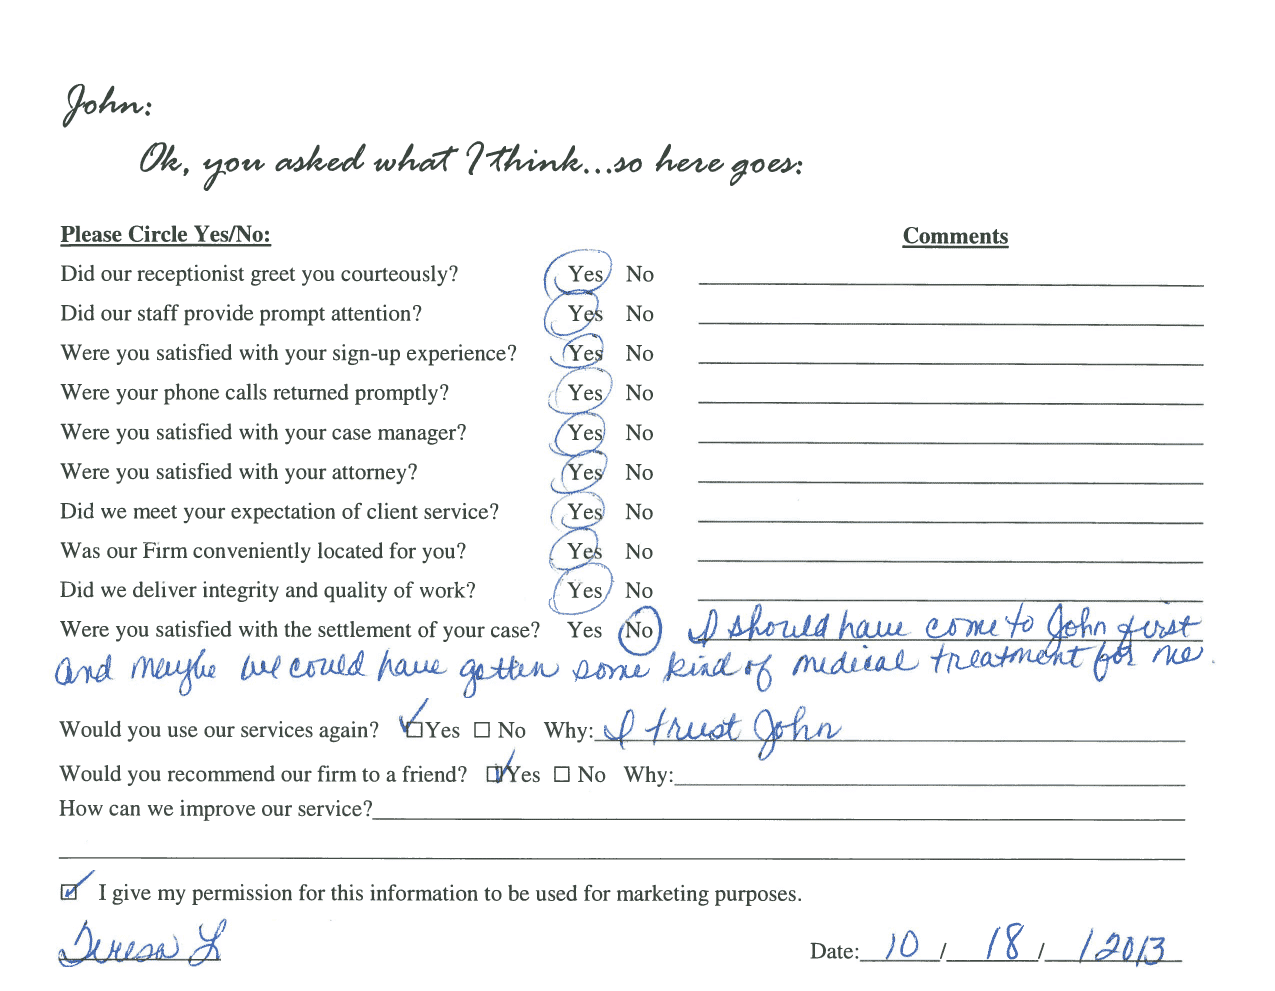 John:
Ok, you asked what I think...so here goes:
Please Circle Yes/No:
Comments
Did our receptionist greet you courteously? Yes No
Did our staff provide prompt attention? Yes No
Were you satisfied with your sign-up experience? Yes No
Were your phone calls returned promptly? Yes No
Were you satisfied with your case manager? Yes No
Were you satisfied with your attorney? Yes No
Did we meet your expectation of client service? Yes No
Was our Firm conveniently located for you? Yes No
Did we deliver integrity and quality of work? Yes No
Were you satisfied with the settlement of your case? Yes No I should have come to John first
and maybe we could have gotten some kind of medical treatment for me.
Would you use our services again? ☑ Yes ☐ No Why: I trust John
Would you recommend our firm to a friend? ☑ Yes ☐ No Why:
How can we improve our service?
☑ I give my permission for this information to be used for marketing purposes.
Teresa L Date: 10 / 18 / 2013